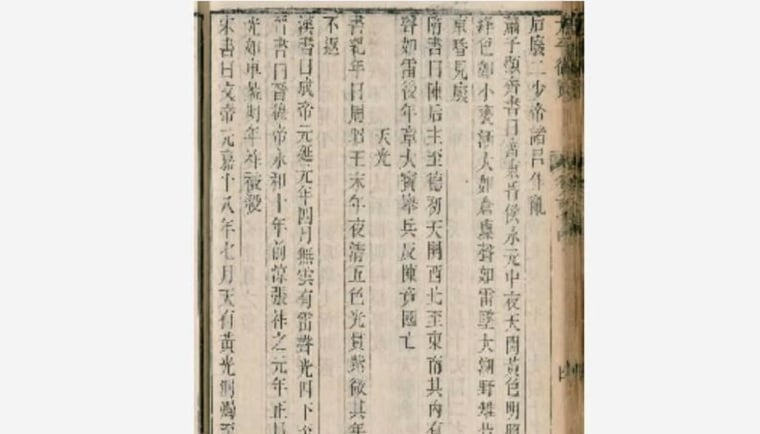 后廢二少帝諸呂作亂
蕭子顯齊書曰齊東昏侯永元中夜天開黃色明照
絳色如小甕漸大如倉廩聲如雷墜大湖野雉皆
東昏見廢
隋書曰陳后主至德初天開西北至東南其內有
聲如雷後年章大寶舉兵反陳竟國亡
天光
書紀年曰周昭王末年夜清五色光貫紫微其年
不返
漢書曰成帝元延元年四月無雲有雷聲光四下
晉書曰晉穆帝永和十年前涼張祚之元年正月
光如車蓋
宋書曰文帝元嘉十八年七月天有黃光洞照